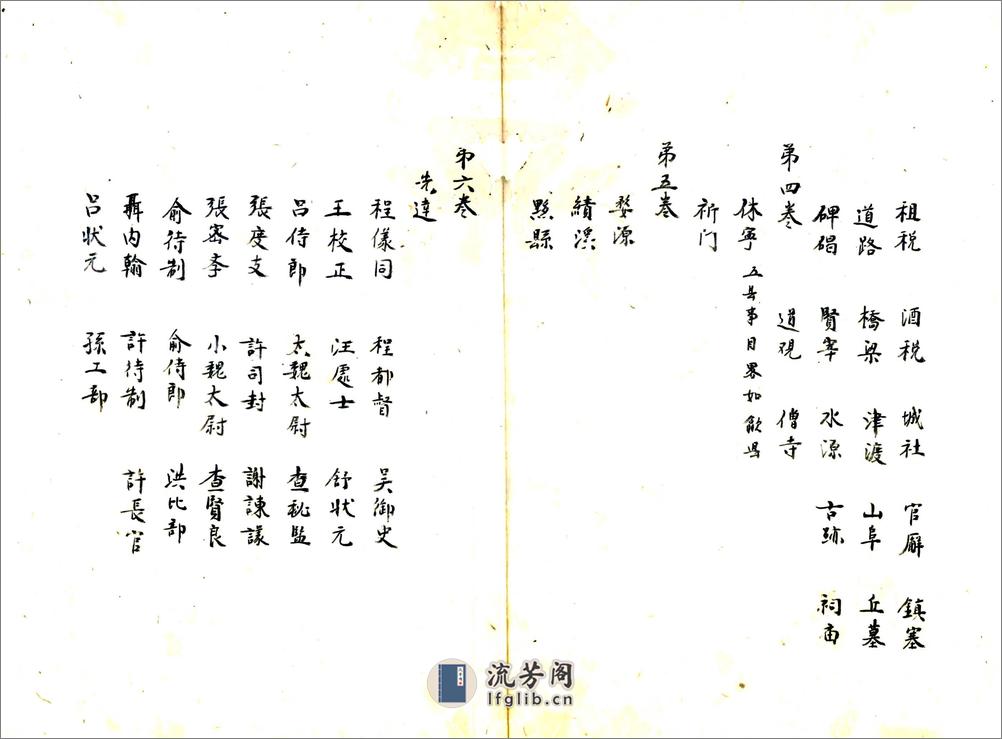 祖税 酒税 城社 官廨 鎮塞
道路 橋梁 津渡 山阜 丘墓
碑碣 賢宰 水源 古跡 祠庙
道观 僧寺
第四卷
休寧 五县事目畧如歙县
祈门
第五卷
婺源
績溪
黟縣
第六卷
先達
程儀同 程都督 吴御史
王校正 汪處士 舒状元
吕侍郎 太魏太尉 查秘監
張度支 許司封 謝諫議
張密李 小魏太尉 查賢良
俞待制 俞侍郎 洪比部
聶内翰 許待制 許長官
吕状元 孫工部
流芳阁
lfglib.cn